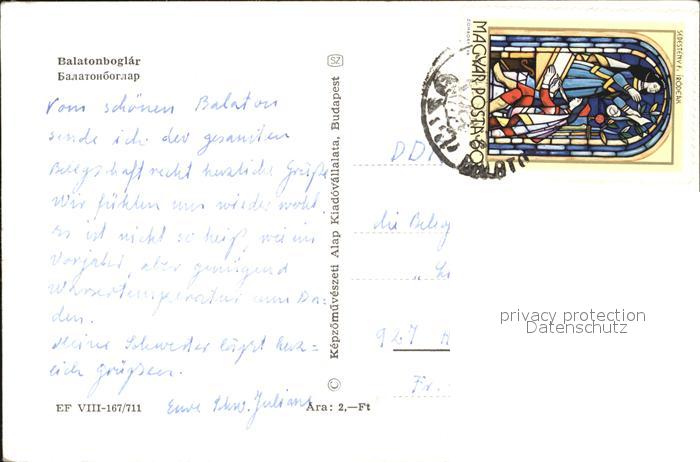 Balatonboglár
Балатонбоглар
Vom schönen Balaton
sende ich der gesamten
Belegschaft recht herzliche Grüße
Wir fühlen uns wieder wohl,
es ist nicht so heiß, wie im
Vorjahr, aber genügend
Wassertemperatur zum Ba=
den.
Meine Schwester läßt herz=
lich grüßen.
Eure Schw. Juliane
EF VIII-167/711
Ára: 2,—Ft
© Képzőművészeti Alap Kiadóvállalata, Budapest
SZ
DD
die Beleg
927
Fr.
MAGYAR POSTA 60
SEBESTÉNY F. IRODERÁK
BALATO
privacy protection
Datenschutz